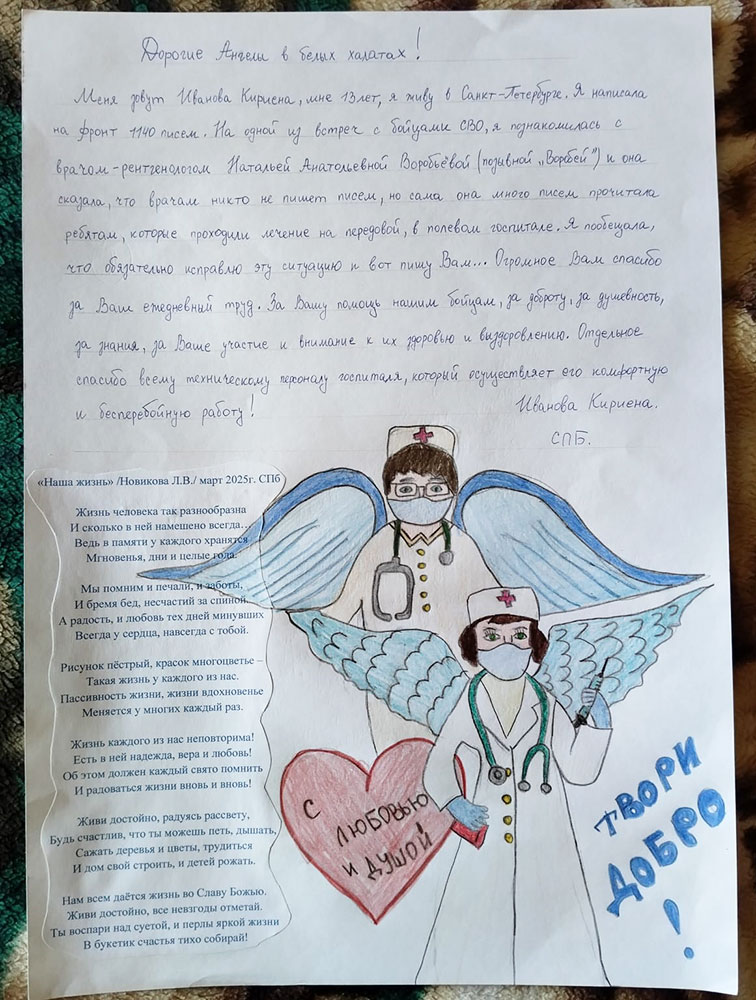 Дорогие Ангелы в белых халатах!
Меня зовут Иванова Кириена, мне 13 лет, я живу в Санкт-Петербурге. Я написала
на фронт 1140 писем. На одной из встреч с бойцами СВО, я познакомилась с
врачом-рентгенологом Натальей Анатольевной Воробьёвой (позывной „Воробей") и она
сказала, что врачам никто не пишет писем, но сама она много писем прочитала
ребятам, которые проходили лечение на передовой, в полевом госпитале. Я пообещала,
что обязательно исправлю эту ситуацию и вот пишу Вам... Огромное Вам спасибо
за Ваш ежедневный труд. За Вашу помощь нашим бойцам, за доброту, за душевность,
за знания, за Ваше участие и внимание к их здоровью и выздоровлению. Отдельное
спасибо всему техническому персоналу госпиталя, который осуществляет его комфортную
и бесперебойную работу!
Иванова Кириена.
СПБ.
«Наша жизнь» /Новикова Л.В./ март 2025г. СПб
Жизнь человека так разнообразна
И сколько в ней намешено всегда…
Ведь в памяти у каждого хранятся
Мгновенья, дни и целые года.
Мы помним и печали, и заботы,
И бремя бед, несчастий за спиной.
А радость, и любовь тех дней минувших
Всегда у сердца, навсегда с тобой.
Рисунок пёстрый, красок многоцветье –
Такая жизнь у каждого из нас.
Пассивность жизни, жизни вдохновенье
Меняется у многих каждый раз.
Жизнь каждого из нас неповторима!
Есть в ней надежда, вера и любовь!
Об этом должен каждый свято помнить
И радоваться жизни вновь и вновь!
Живи достойно, радуясь рассвету,
Будь счастлив, что ты можешь петь, дышать,
Сажать деревья и цветы, трудиться
И дом свой строить, и детей рожать.
Нам всем даётся жизнь во Славу Божью.
Живи достойно, все невзгоды отметай.
Ты воспари над суетой, и перлы яркой жизни
В букетик счастья тихо собирай!
С
ЛЮБОВЬЮ
И ДУШОЙ
ТВОРИ
ДОБРО
!